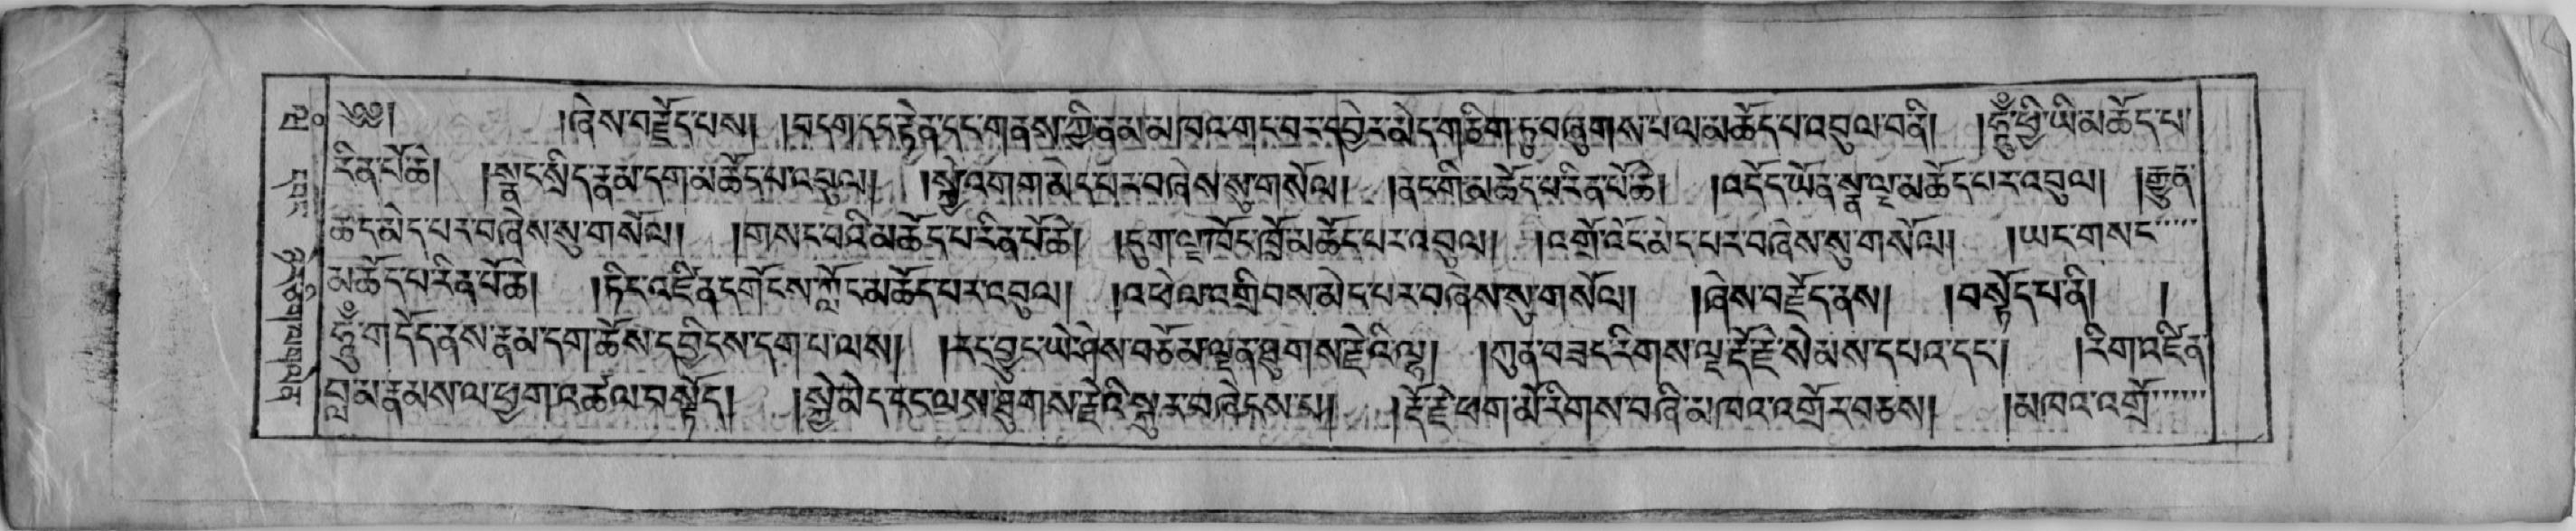 ༄༅། །ཞེས་བརྗོད་པས། །བདག་དང་རྟེན་དང་གནས་ཀྱི་ནམ་མཁའ་གང་བར་དབྱེར་མེད་གཅིག་ཏུ་བཞུགས་པ་ལ་མཆོད་པ་འབུལ་བ་ནི། །ཧཱུྃ་ཕྱི་ཡི་མཆོད་པ་
རིན་པོ་ཆེ། །སྣང་སྲིད་རྣམ་དག་མཆོད་པ་འབུལ། །སྐྱེ་འགག་མེད་པར་བཞེས་སུ་གསོལ། །ནང་གི་མཆོད་པ་རིན་པོ་ཆེ། །འདོད་ཡོན་སྣ་ལྔ་མཆོད་པར་འབུལ། །རྒྱུན་
ཆད་མེད་པར་བཞེས་སུ་གསོལ། །གསང་བའི་མཆོད་པ་རིན་པོ་ཆེ། །དུག་ལྔ་ཁོང་ཁྲོ་མཆོད་པར་འབུལ། །འགྲོ་འོང་མེད་པར་བཞེས་སུ་གསོལ། །ཡང་གསང་
མཆོད་པ་རིན་པོ་ཆེ། །ཏིང་འཛིན་དགོངས་ཀློང་མཆོད་པར་འབུལ། །འཕེལ་འགྲིབས་མེད་པར་བཞེས་སུ་གསོལ། །ཞེས་བརྗོད་ནས། །བསྟོད་པ་ནི། །
ཧཱུྃ་གདོད་ནས་རྣམ་དག་ཆོས་དབྱིངས་དག་པ་ལས། །རང་བྱུང་ཡེ་ཤེས་བཅོམ་ལྡན་ཐུགས་རྗེའི་ལྷ། །ཀུན་བཟང་རིགས་ལྔ་རྡོ་རྗེ་སེམས་དཔའ་དང་། །རིག་འཛིན་
བླ་མ་རྣམས་ལ་ཕྱག་འཚལ་བསྟོད། །སྐྱེ་མེད་ངང་ལས་ཐུགས་རྗེའི་སྐུར་བཞེངས་པ། །རྡོ་རྗེ་ཕག་མོ་རིགས་བཞི་མཁའ་འགྲོར་བཅས། །མཁའ་འགྲོ་